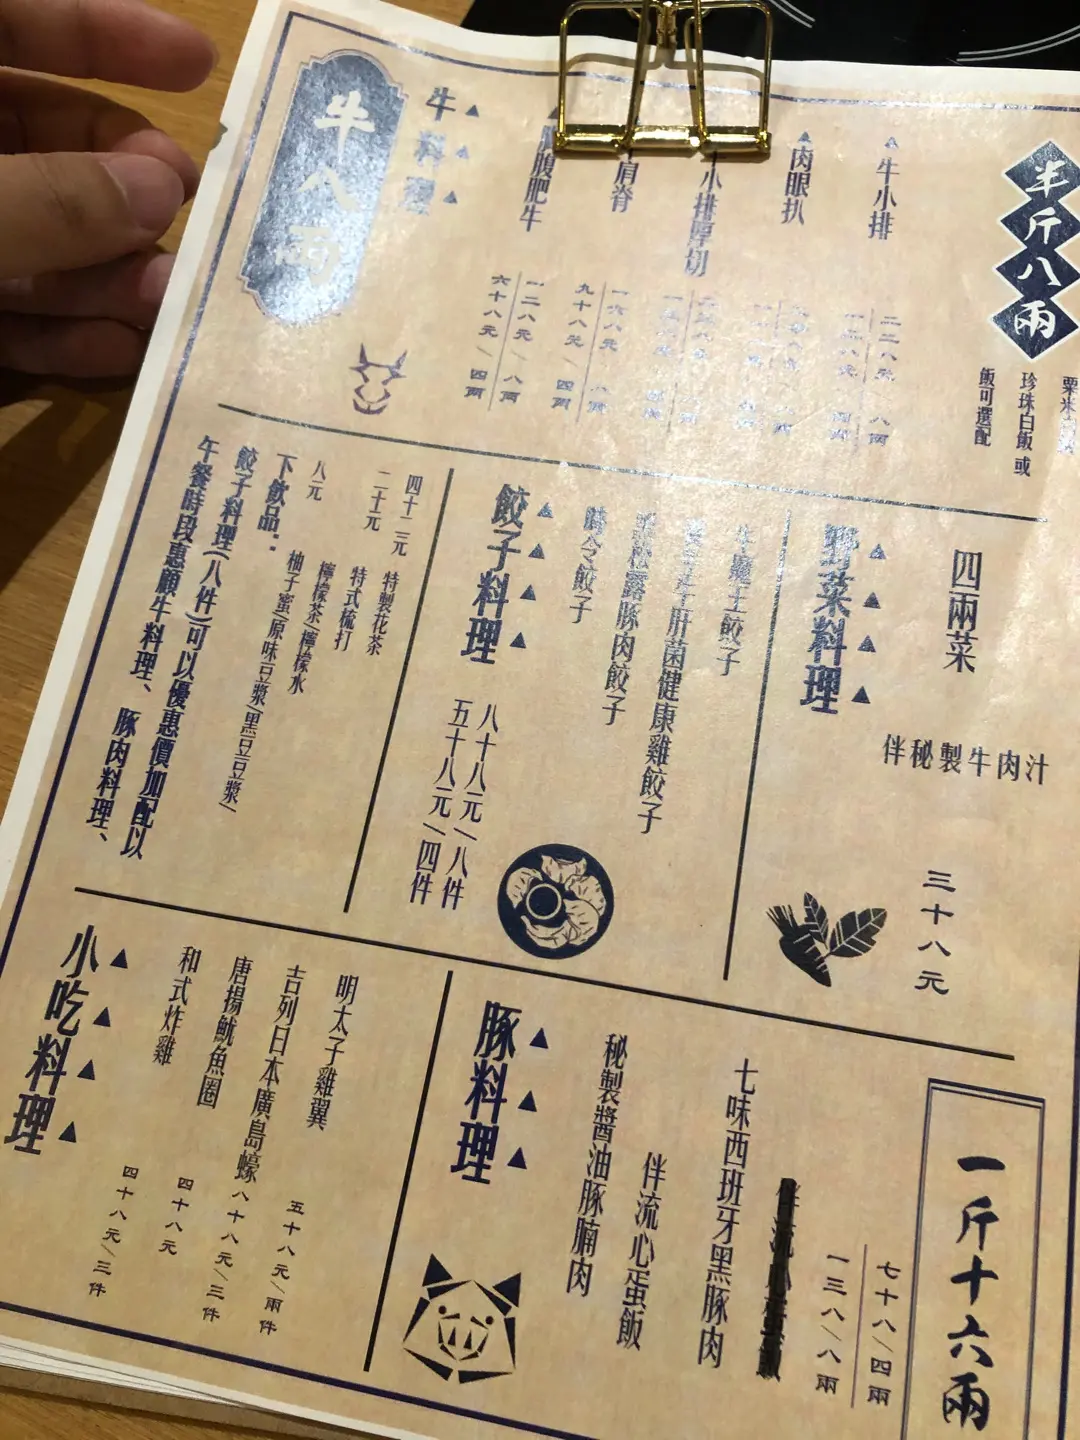 半斤八兩
粟米
珍珠白飯 或
飯可選配
牛小排
二二八元／八兩
肉眼扒
小排厚切
肩脊
一六八元／八兩
九十八元／四兩
腹肥牛
一二八元／八兩
六十八元／四兩
牛料理
牛八兩
四兩菜
伴秘製牛肉汁
三十八元
野菜料理
牛魔王餃子
肝菌健康雞餃子
松露豚肉餃子
時令餃子
餃子料理
八十八元／八件
五十八元／四件
午餐時段惠顧牛料理、豚肉料理、
餃子料理(八件)可以優惠價加配以
下飲品：
八元 柚子蜜/原味豆漿/黑豆豆漿/
檸檬茶/檸檬水
二十元 特式梳打
四十二元 特製花茶
一斤十六兩
七十八/四兩
一三八/八兩
七味西班牙黑豚肉
伴流心蛋飯
秘製醬油豚腩肉
豚料理
明太子雞翼
五十八元／兩件
吉列日本廣島蠔
八十八元／三件
唐揚魷魚圈
四十八元
和式炸雞
四十八元／三件
小吃料理